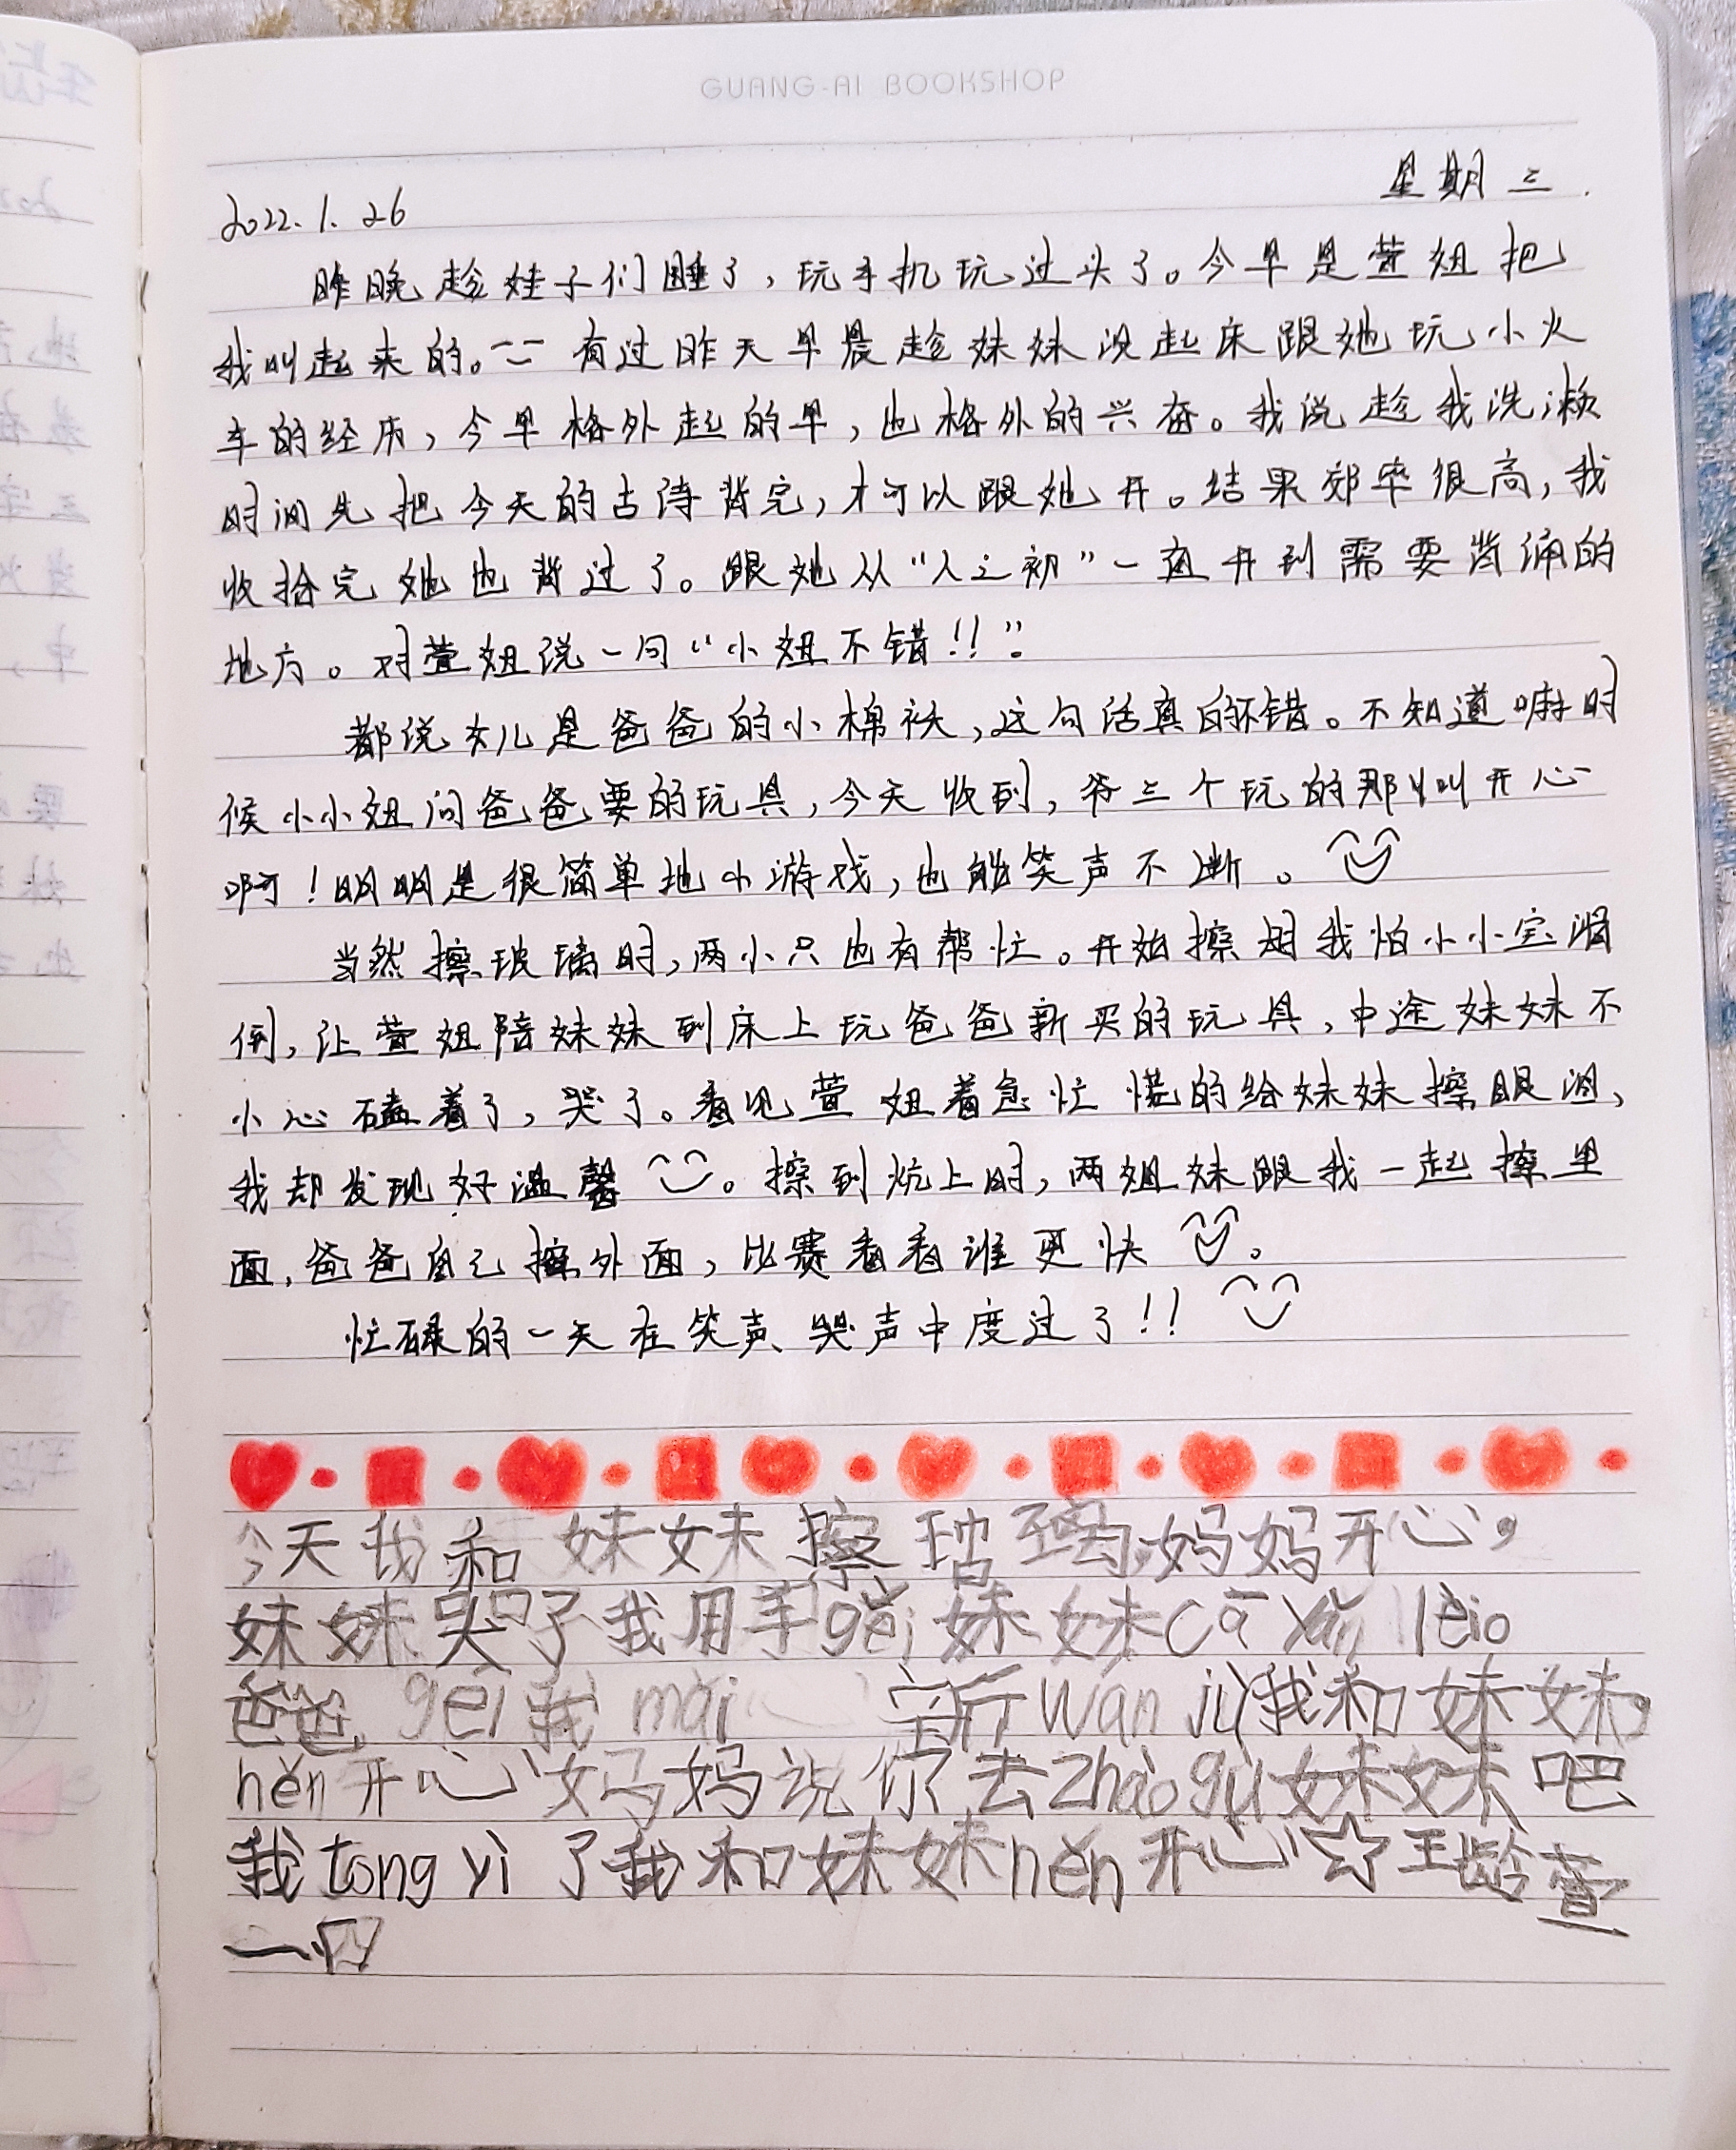 GUANG-AI BOOKSHOP
2022.1.26 星期三.
昨晚趁娃子们睡了,玩手机玩过头了。今早是萱姐把
我叫起来的。有过昨天早晨趁妹妹没起床跟她玩小火
车的经历,今早格外起的早,也格外的兴奋。我说趁我洗漱
时间先把今天的古诗背完,才可以跟她开。结果效率很高,我
收拾完她也背过了。跟她从“人之初”一直开到需要背诵的
地方。对萱姐说一句“小姐不错!!”。
都说女儿是爸爸的小棉袄,这句话真的不错。不知道啥时
候小小姐问爸爸要的玩具,今天收到,爷三个玩的那叫开心
啊!明明是很简单地小游戏,也能笑声不断。
当然擦玻璃时,两小只也有帮忙。开始擦时我怕小小宝滑
倒,让萱姐陪妹妹到床上玩爸爸新买的玩具,中途妹妹不
小心磕着了,哭了。看见萱姐着急忙慌的给妹妹擦眼泪,
我却发现好温馨。擦到炕上时,两姐妹跟我一起擦里
面,爸爸自己擦外面,比赛看看谁更快。
忙碌的一天在笑声、哭声中度过了!!
今天我和妹妹擦玻璃,妈妈开心,
妹妹哭了我用手gěi妹妹cā yǎn lèi。
爸爸gěi我mǎi新wán jù我和妹妹
hěn开心妈妈说你去zhào gù妹妹吧
我tóng yì了我和妹妹hěn开心☆王龄萱